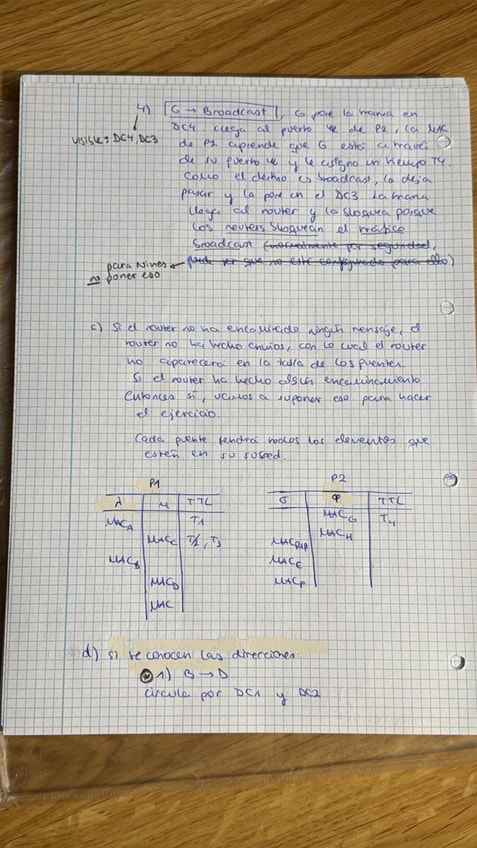 4) G → Broadcast, G pone la trama en
visible = DC4, DC3
DC4 llega al puerto φ de P2, la MAC
de P2 aprende que G está a través
de su puerto φ y le asigna un tiempo T4.
Como el destino es broadcast, la deja
pasar y la pone en el DC3. La trama
llega al router y la bloquea porque
los routers bloquean el tráfico
broadcast (normalmente por seguridad,
puede ser que no esté configurado para ello)
para Nines
no poner eso
c) Si el router no ha encaminado ningún mensaje, el
router no ha hecho envíos, con lo cual el router
no aparecerá en la tabla de los puentes.
Si el router ha hecho algún encaminamiento
entonces sí, vamos a suponer eso para hacer
el ejercicio.
Cada puente tendrá todos los elementos que
estén en su subred.
P1
λ M TTL
MAC_A T1
MAC_C T2, T3
MAC_B
MAC_D
MAC
P2
σ φ TTL
MAC_G T4
MAC_H
MAC_E
MAC_F
d) Si se conocen las direcciones
1) B → D
circula por DC1 y DC2